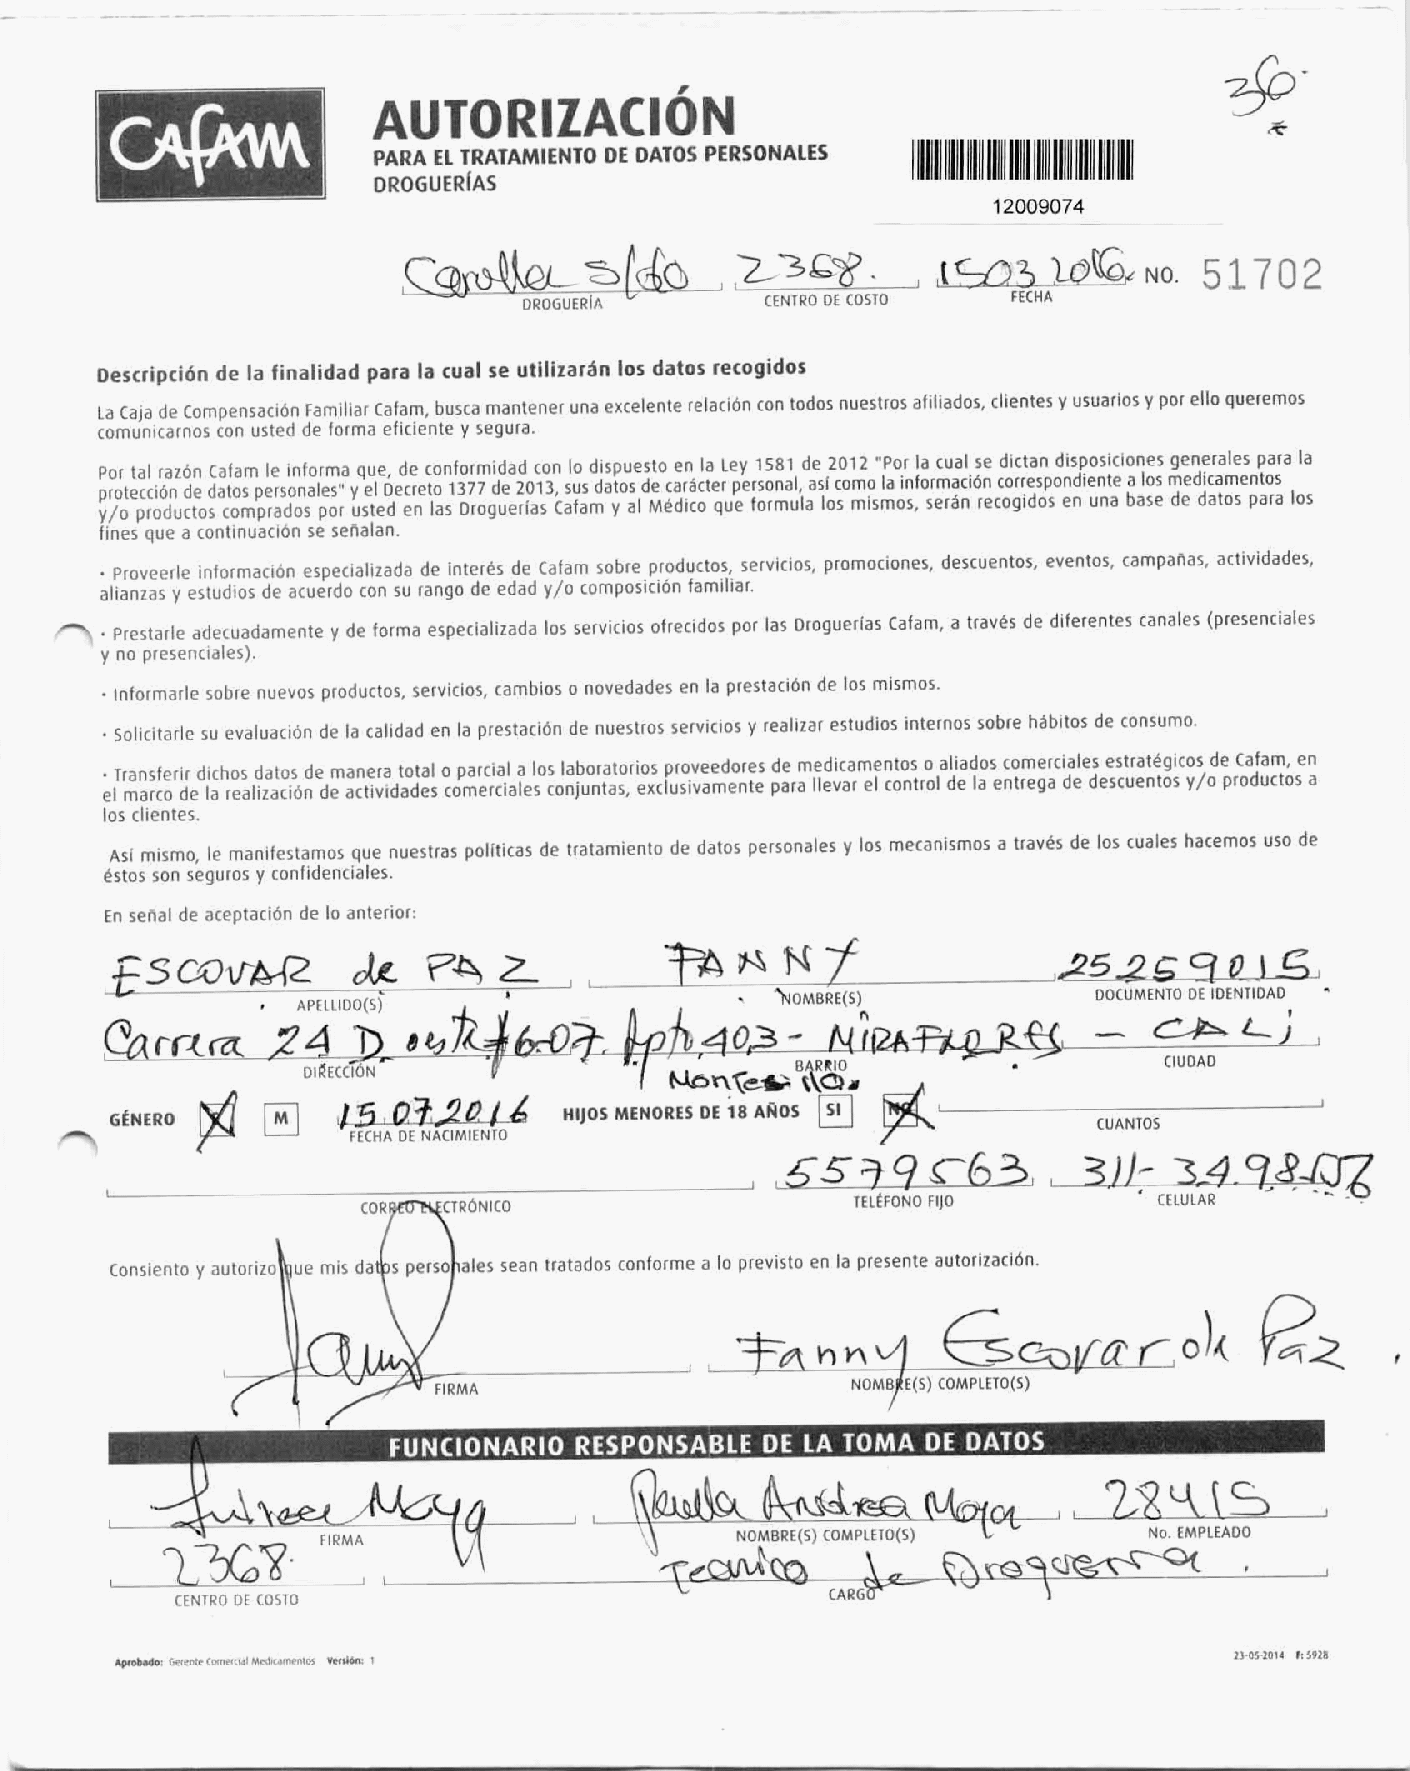 36.
CAFAM
AUTORIZACIÓN
PARA EL TRATAMIENTO DE DATOS PERSONALES
DROGUERÍAS
12009074
2368. 15032016 NO. 51702
DROGUERÍA CENTRO DE COSTO FECHA
Descripción de la finalidad para la cual se utilizarán los datos recogidos
La Caja de Compensación Familiar Cafam, busca mantener una excelente relación con todos nuestros afiliados, clientes y usuarios y por ello queremos
comunicarnos con usted de forma eficiente y segura.
Por tal razón Cafam le informa que, de conformidad con lo dispuesto en la Ley 1581 de 2012 "Por la cual se dictan disposiciones generales para la
protección de datos personales" y el Decreto 1377 de 2013, sus datos de carácter personal, así como la información correspondiente a los medicamentos
y/o productos comprados por usted en las Droguerías Cafam y al Médico que formula los mismos, serán recogidos en una base de datos para los
fines que a continuación se señalan.
· Proveerle información especializada de interés de Cafam sobre productos, servicios, promociones, descuentos, eventos, campañas, actividades,
alianzas y estudios de acuerdo con su rango de edad y/o composición familiar.
· Prestarle adecuadamente y de forma especializada los servicios ofrecidos por las Droguerías Cafam, a través de diferentes canales (presenciales
y no presenciales).
· Informarle sobre nuevos productos, servicios, cambios o novedades en la prestación de los mismos.
· Solicitarle su evaluación de la calidad en la prestación de nuestros servicios y realizar estudios internos sobre hábitos de consumo.
· Transferir dichos datos de manera total o parcial a los laboratorios proveedores de medicamentos o aliados comerciales estratégicos de Cafam, en
el marco de la realización de actividades comerciales conjuntas, exclusivamente para llevar el control de la entrega de descuentos y/o productos a
los clientes.
Así mismo, le manifestamos que nuestras políticas de tratamiento de datos personales y los mecanismos a través de los cuales hacemos uso de
éstos son seguros y confidenciales.
En señal de aceptación de lo anterior:
ESCOVAR de PAZ FANNY 25259015
APELLIDO(S) NOMBRE(S) DOCUMENTO DE IDENTIDAD
Carrera 24 D oeste #6-07. Apto 403- MIRAFLORES - CALi
DIRECCIÓN BARRIO CIUDAD
GÉNERO M 15.07.2016 HIJOS MENORES DE 18 AÑOS SI NO
FECHA DE NACIMIENTO CUANTOS
5579563 311-
CORREO ELECTRÓNICO TELÉFONO FIJO CELULAR
Consiento y autorizo que mis datos personales sean tratados conforme a lo previsto en la presente autorización.
Fanny Escovar de Paz
FIRMA NOMBRE(S) COMPLETO(S)
FUNCIONARIO RESPONSABLE DE LA TOMA DE DATOS
Moya Andrea Moya 28415
FIRMA NOMBRE(S) COMPLETO(S) No. EMPLEADO
2368. Tecnico de Drogueria.
CENTRO DE COSTO CARGO
Aprobado: Gerente Comercial Medicamentos Versión: 1 23-05-2014 F: 5928